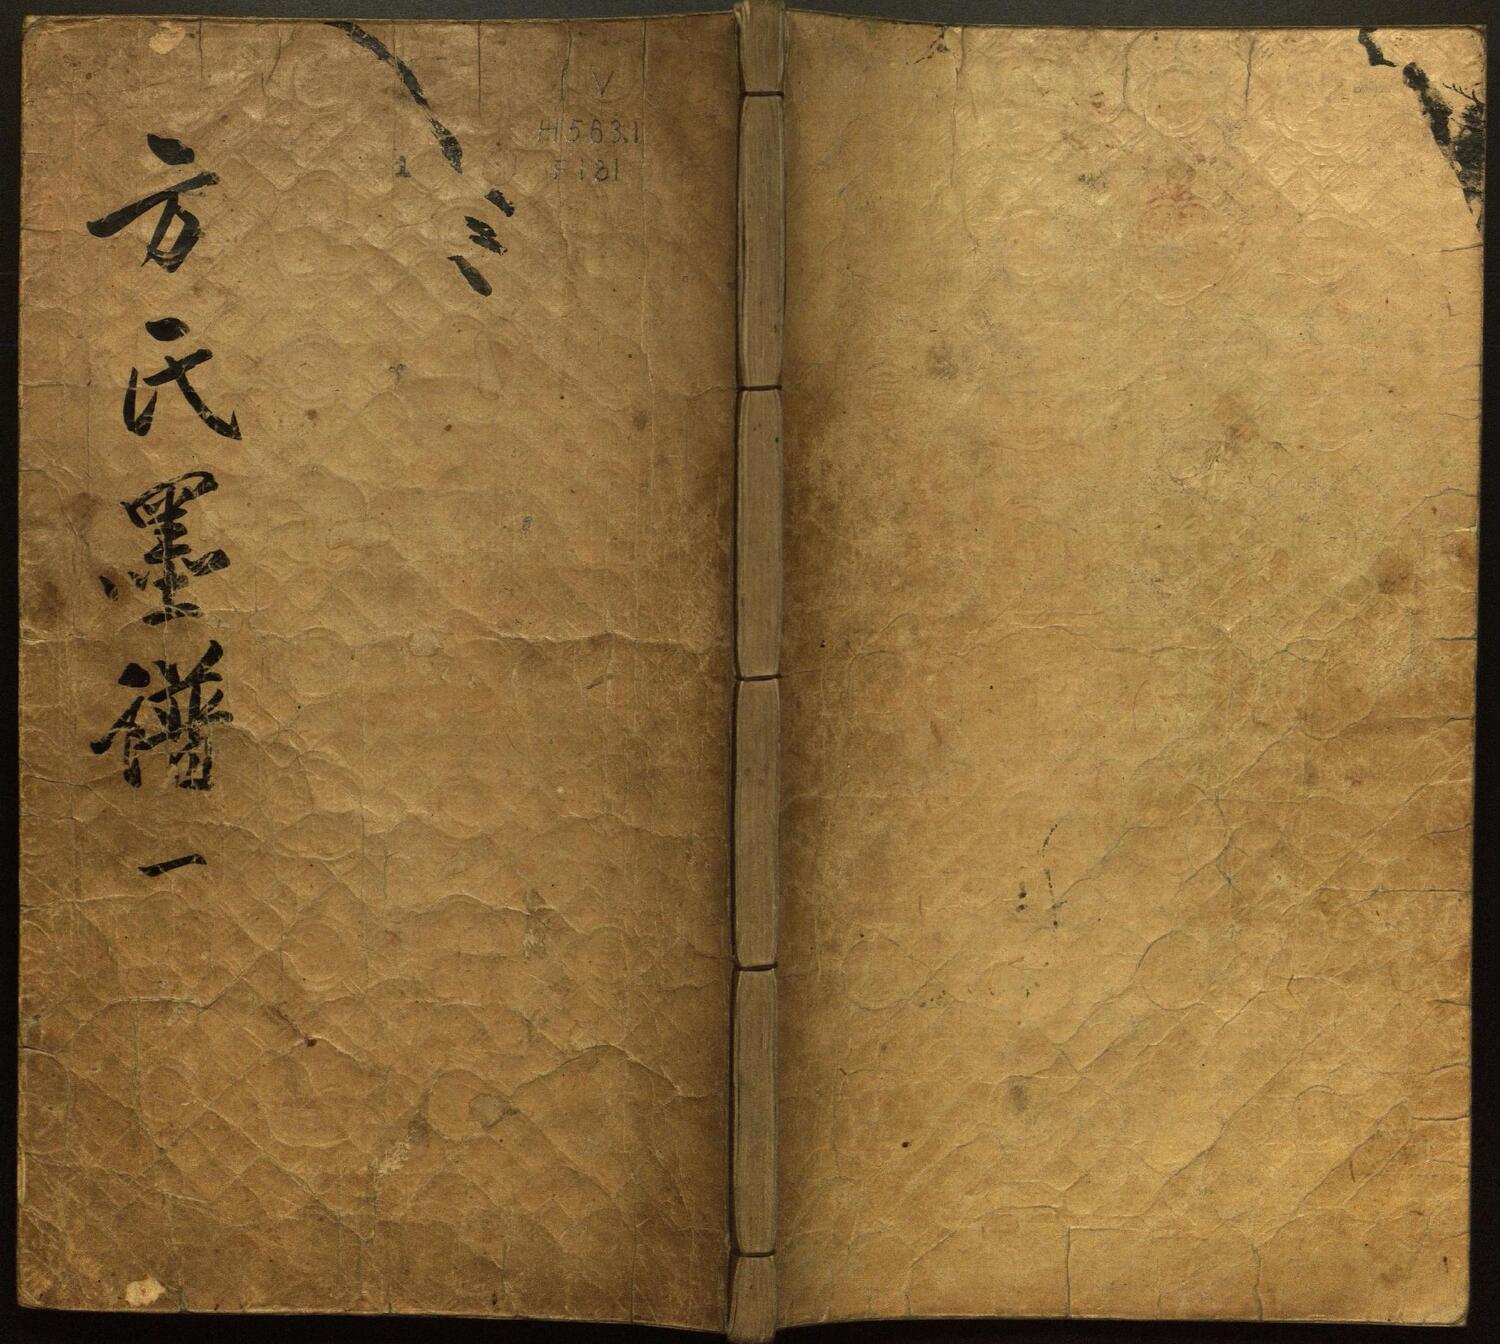 方氏墨譜 一
三
V
H563.1
F181
1